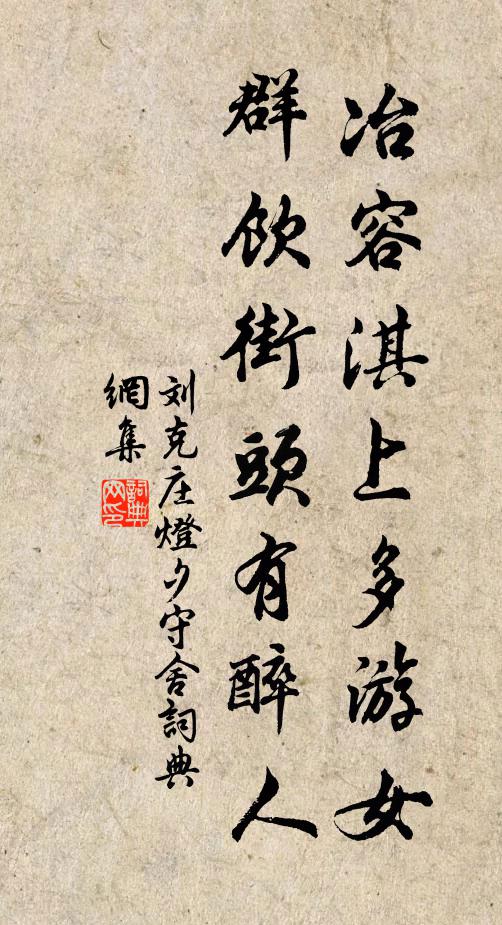 冶容淇上多游女
群飲街頭有醉人
刘克庄燈夕守舍詞典
網集
詞典
网印